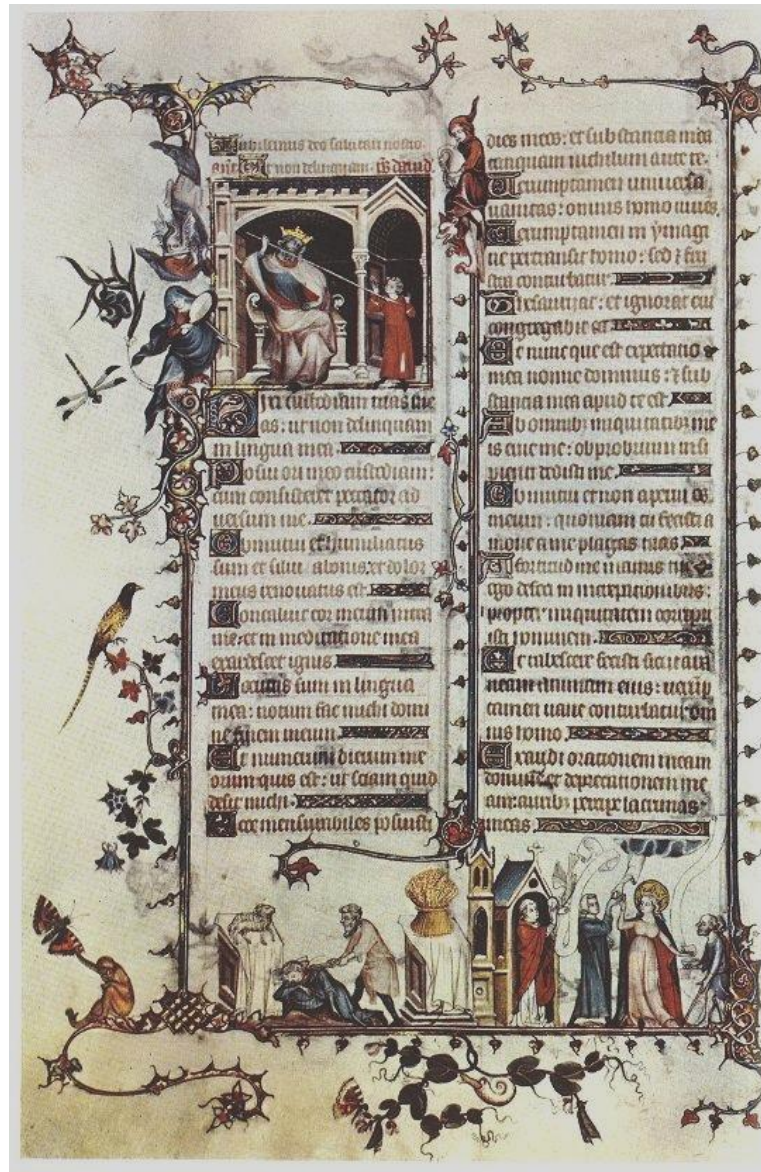 Jubilemus deo salutari nostro.
Ut non delinquam. david
Dixi custodiam uias me
as: ut non delinquam
in lingua mea.
Posui ori meo custodiam:
cum consisteret peccator ad
uersum me.
Obmutui et humiliatus
sum et silui abonis: et dolor
meus renouatus est.
Concaluit cor meum intra
me: et in meditatione mea
exardescet ignis
Locutus sum in lingua
mea: notum fac michi domi
ne finem meum
Et numerum dierum me
orum quis est: ut sciam quid
desit michi.
Ecce mensurabiles posuisti
dies meos: et substancia mea
tanquam nichilum ante te.
Uerumptamen uniuersa
uanitas: omnis homo uiuens.
Uerumptamen in ymagi
ne pertransit homo: sed et frus
tra conturbatur.
Thesaurizat: et ignorat cui
congregabit ea.
Et nunc que est expectatio
mea nonne dominus: et sub
stancia mea apud te est.
Ab omnibz iniquitatibz me
is erue me: obprobrium insi
pienti dedisti me.
Obmutui et non aperui os
meum: quoniam tu fecisti a
moue a me plagas tuas
A fortitudine manus tue
ego defeci in increpationibus:
propter iniquitatem corripu
isti hominem.
Et tabescere fecisti sicut ara
neam animam eius: uerump
tamen uane conturbatur om
nis homo.
Exaudi orationem meam
domine et deprecationem me
am: auribz percipe lacrimas
meas.